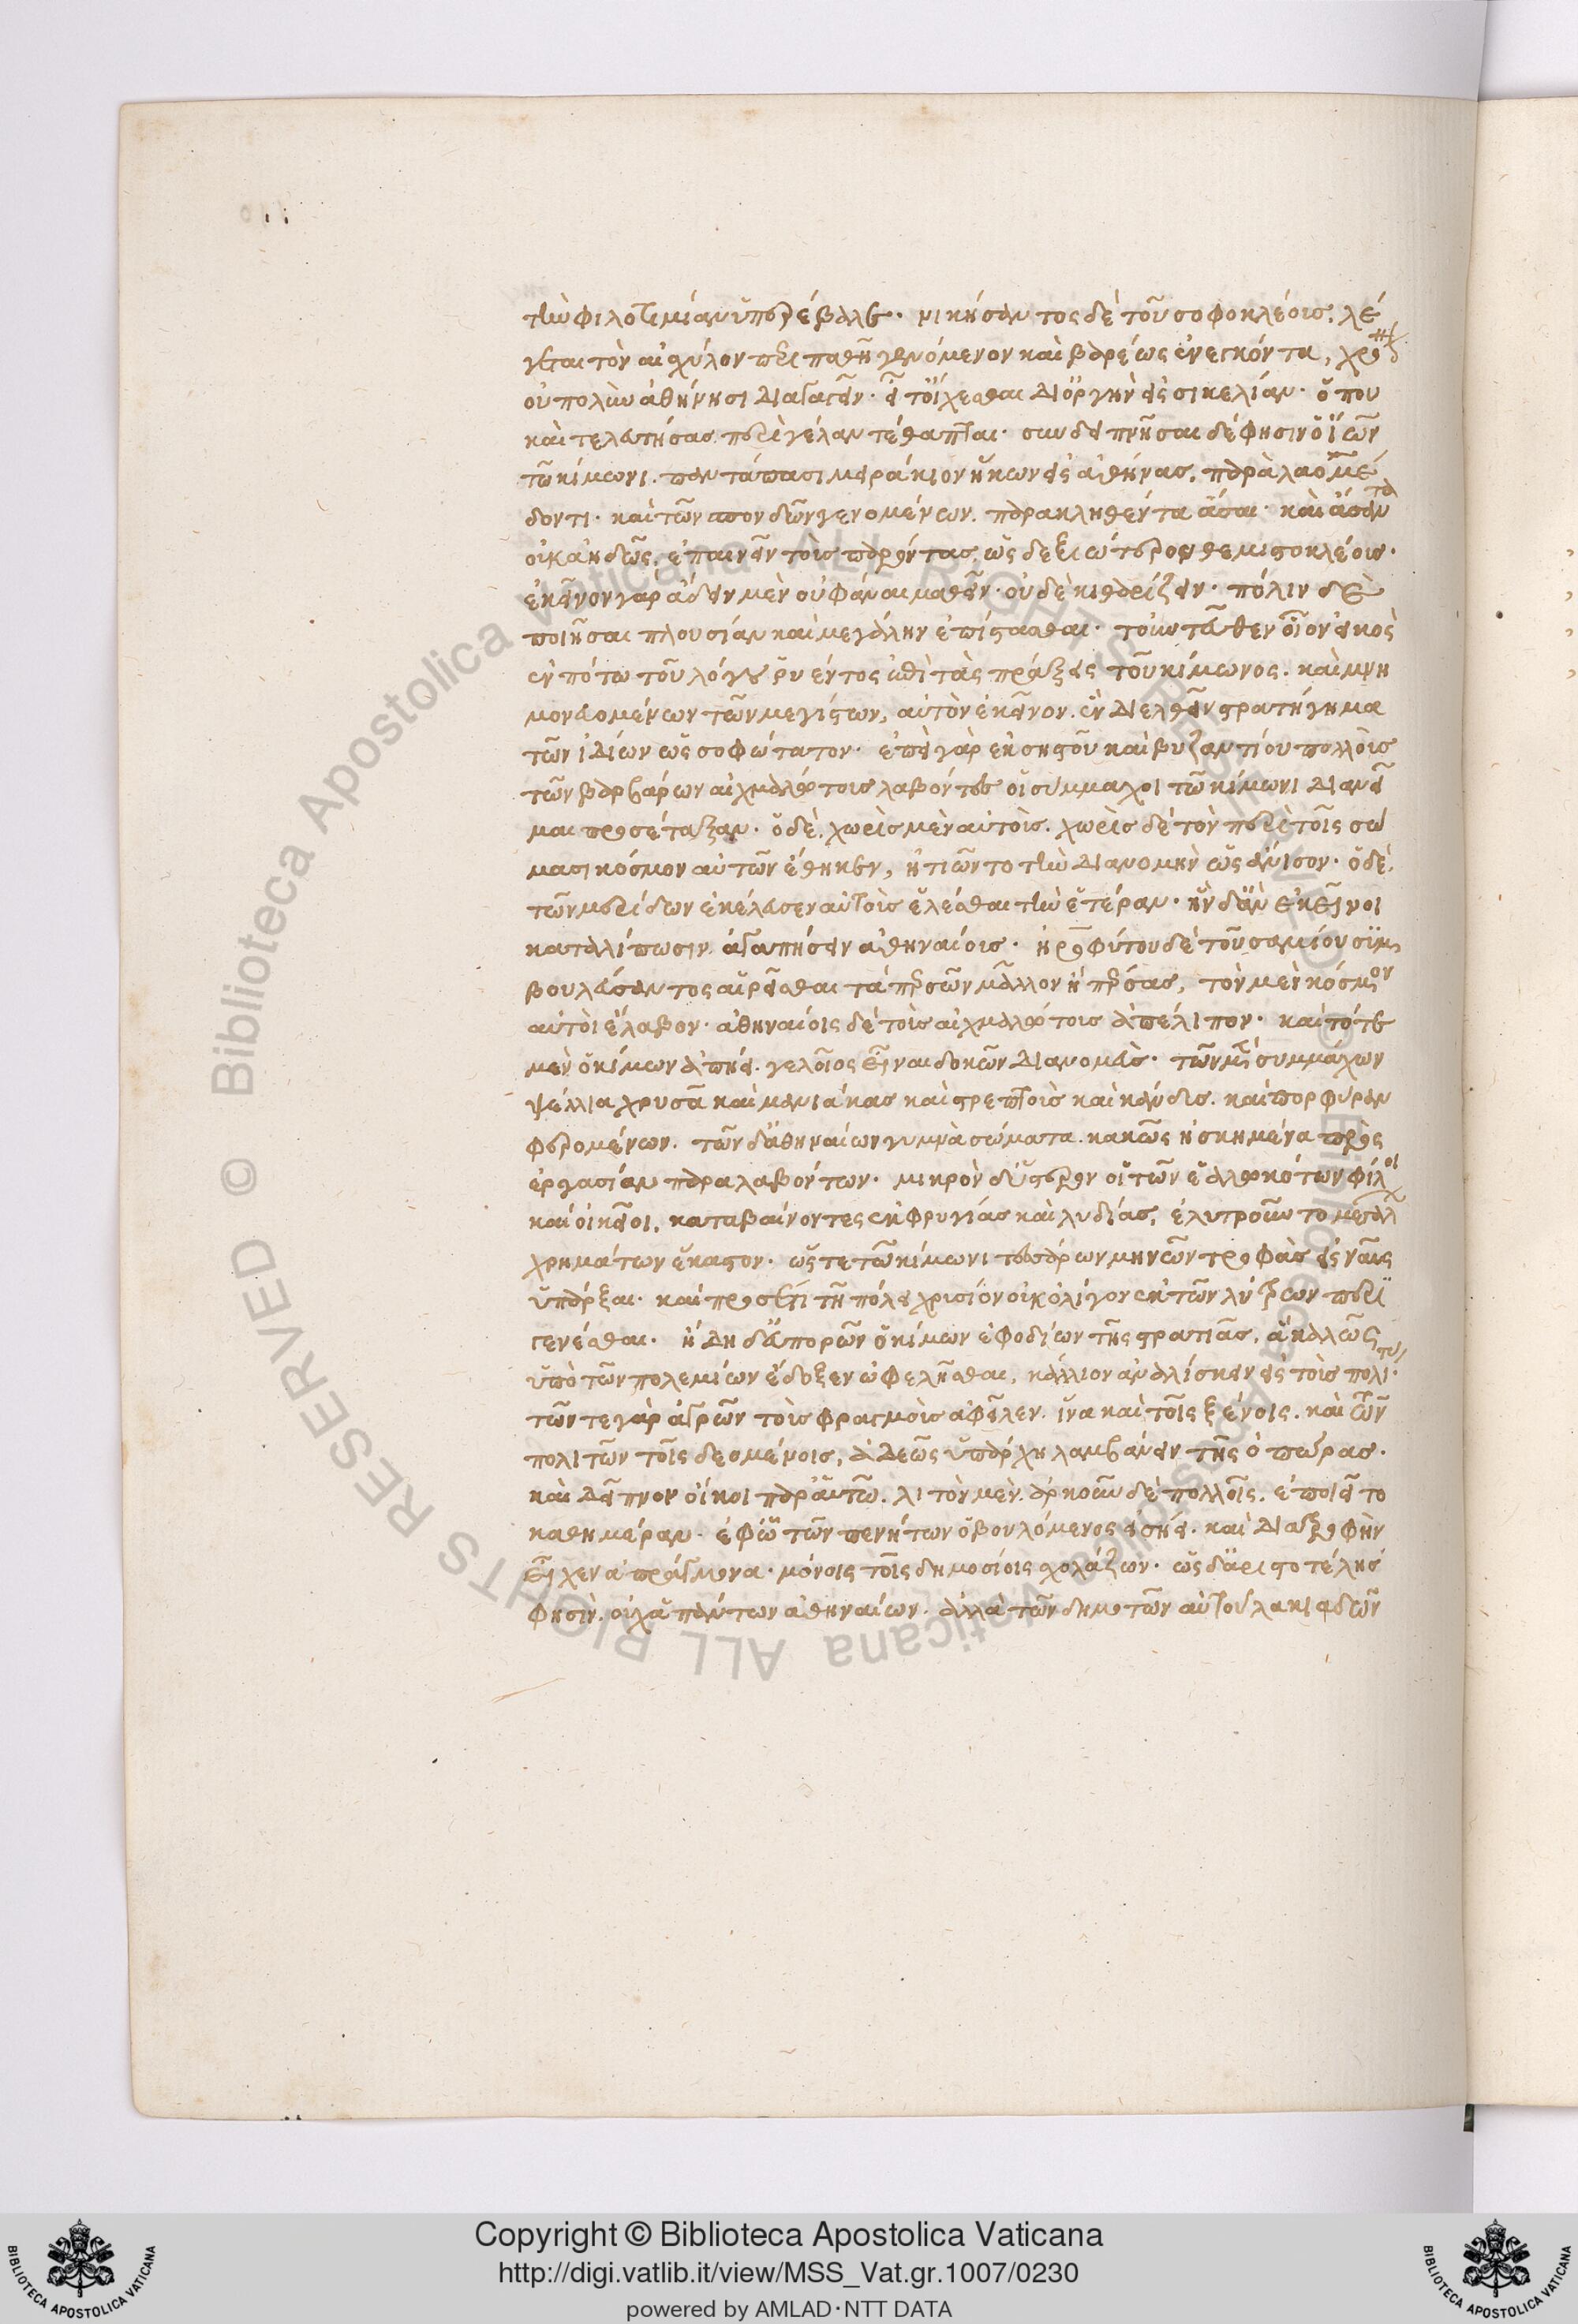 τὴν φιλοτιμίαν ὑπερέβαλε. νικήσαντος δὲ τοῦ σοφοκλέους, λέ
γεται τὸν αἰσχύλον περιπαθῆ γενόμενον καὶ βαρέως ἐνεγκόντα, χρόνον
οὐ πολὺν ἀθήνησι διαγαγεῖν. εἶτ' οἴχεσθαι δι' ὀργὴν εἰς σικελίαν. ὅπου
καὶ τελευτήσας περὶ γέλαν τέθαπται. συνδειπνῆσαι δέ φησιν ὁ ἴων
τῶ κίμωνι. παντάπασι μειράκιον ἥκων εἰς ἀθήνας, παρὰ λαομέ
δοντι. καὶ τῶν σπονδῶν γενομένων. παρακληθέντα ἆσαι. καὶ ἄσαντα
οὐκ ἀηδῶς, ἐπαινεῖν τοὺς παρόντας, ὡς δεξιώτερον θεμιστοκλέους.
ἐκεῖνον γὰρ ἄδειν μὲν οὐ φάναι μαθεῖν. οὐδὲ κιθαρίζειν. πόλιν δὲ
ποιῆσαι πλουσίαν καὶ μεγάλην ἐπίστασθαι. τοὐντεῦθεν οἷον εἰκὸς
ἐν πότω τοῦ λόγου ῥυέντος ἐπὶ τὰς πράξεις τοῦ κίμωνος. καὶ μνη
μονευομένων τῶν μεγίστων, αὐτὸν ἐκεῖνον. ἓν διελθεῖν στρατήγημα
τῶν ἰδίων ὡς σοφώτατον. ἐπεὶ γὰρ ἐκ σηστοῦ καὶ βυζαντίου πολλοὺς
τῶν βαρβάρων αἰχμαλώτους λαβόντες οἱ σύμμαχοι τῶ κίμωνι διανεῖ
μαι προσέταξαν. ὁ δὲ, χωρὶς μὲν αὐτοὺς. χωρὶς δὲ τὸν περὶ τοῖς σώ
μασι κόσμον αὐτῶν ἔθηκεν, ἠτιῶντο τὴν διανομὴν ὡς ἄνισον. ὁ δὲ,
τῶν μερίδων ἐκέλευσεν αὐτοὺς ἑλέσθαι τὴν ἑτέραν. ἣν δ' ἂν ἐκεῖνοι
καταλίπωσιν. ἀγαπήσειν ἀθηναίους. ἡροφύτου δὲ τοῦ σαμίου συμ
βουλεύσαντος αἱρεῖσθαι τὰ περσῶν μᾶλλον ἢ πέρσας, τὸν μὲν κόσμον
αὐτοὶ ἔλαβον. ἀθηναίοις δὲ τοὺς αἰχμαλώτους ἀπέλιπον. καὶ τότε
μὲν ὁ κίμων ἀπήει. γελοῖος εἶναι δοκῶν διανομεὺς. τῶν μὲν συμμάχων
ψέλλια χρυσᾶ καὶ μανιάκας καὶ στρεπτοὺς καὶ κάνδυς. καὶ πορφύραν
φερομένων. τῶν δ' ἀθηναίων γυμνὰ σώματα. κακῶς ἠσκημένα πρὸς
ἐργασίαν παραλαβόντων. μικρὸν δ' ὕστερον οἱ τῶν ἑαλωκότων φίλοι
καὶ οἰκεῖοι, καταβαίνοντες ἐκ φρυγίας καὶ λυδίας, ἐλυτροῦντο μεγάλων
χρημάτων ἕκαστον. ὥστε τῶ κίμωνι τεσσάρων μηνῶν τροφὰς εἰς ναῦς
ὑπάρξαι. καὶ προσέτι τῆ πόλει χρυσίον οὐκ ὀλίγον ἐκ τῶν λύτρων περι
γενέσθαι. ἤδη δ' εὐπορῶν ὁ κίμων ἐφοδίων τῆς στρατιᾶς, ἃ καλῶς
ὑπὸ τῶν πολεμίων ἔδοξεν ὠφελῆσθαι, κάλλιον ἀναλίσκειν εἰς τοὺς πολίτας.
τῶν τε γὰρ ἀγρῶν τοὺς φραγμοὺς ἀφεῖλεν. ἵνα καὶ τοῖς ξένοις. καὶ τῶν
πολιτῶν τοῖς δεομένοις, ἀδεῶς ὑπάρχη λαμβάνειν τῆς ὀπώρας.
καὶ δεῖπνον οἴκοι παρ' αὐτῶ. λιτὸν μὲν. ἀρκοῦν δὲ πολλοῖς. ἐποιεῖτο
καθημέραν. ἐφ' ὧ τῶν πενήτων ὁ βουλόμενος εἰσήει. καὶ διατροφὴν
εἶχεν ἀπράγμονα. μόνοις τοῖς δημοσίοις σχολάζων. ὡς δ' ἀριστοτέλης
φησὶν. οὐχ' ἁπάντων ἀθηναίων. ἀλλὰ τῶν δημοτῶν αὐτοῦ λακιαδῶν
Copyright © Biblioteca Apostolica Vaticana
http://digi.vatlib.it/view/MSS_Vat.gr.1007/0230
powered by AMLAD·NTT DATA